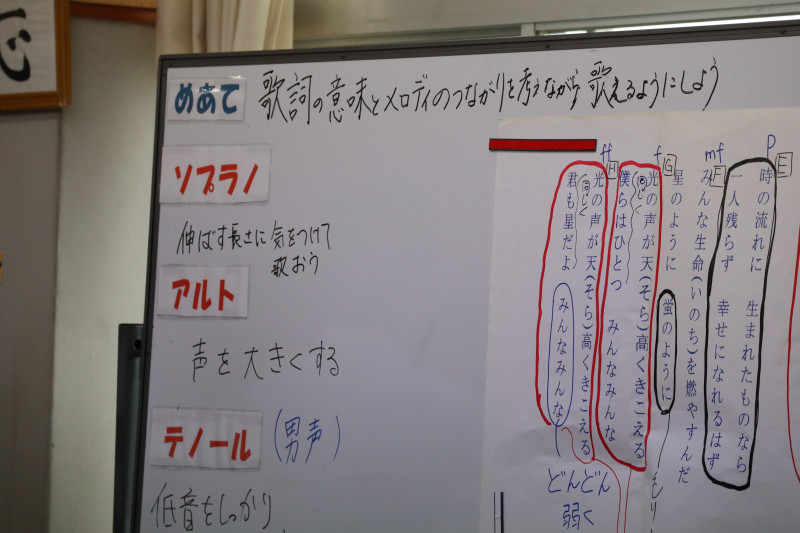 めあて 歌詞の意味とメロディのつながりを考えながら歌えるようにしよう
ソプラノ
伸ばす長さに気をつけて
歌おう
アルト
声を大きくする
テノール (男声)
低音をしっかり
p E
時の流れに 生まれたものなら
一人残らず 幸せになれるはず
mf F
みんな生命(いのち)を燃やすんだ
星のように 蛍のように
f G
光の声が天(そら)高くきこえる
僕らはひとつ みんなみんな
ff H
光の声が天(そら)高くきこえる
君も星だよ みんなみんな
どんどん
弱く